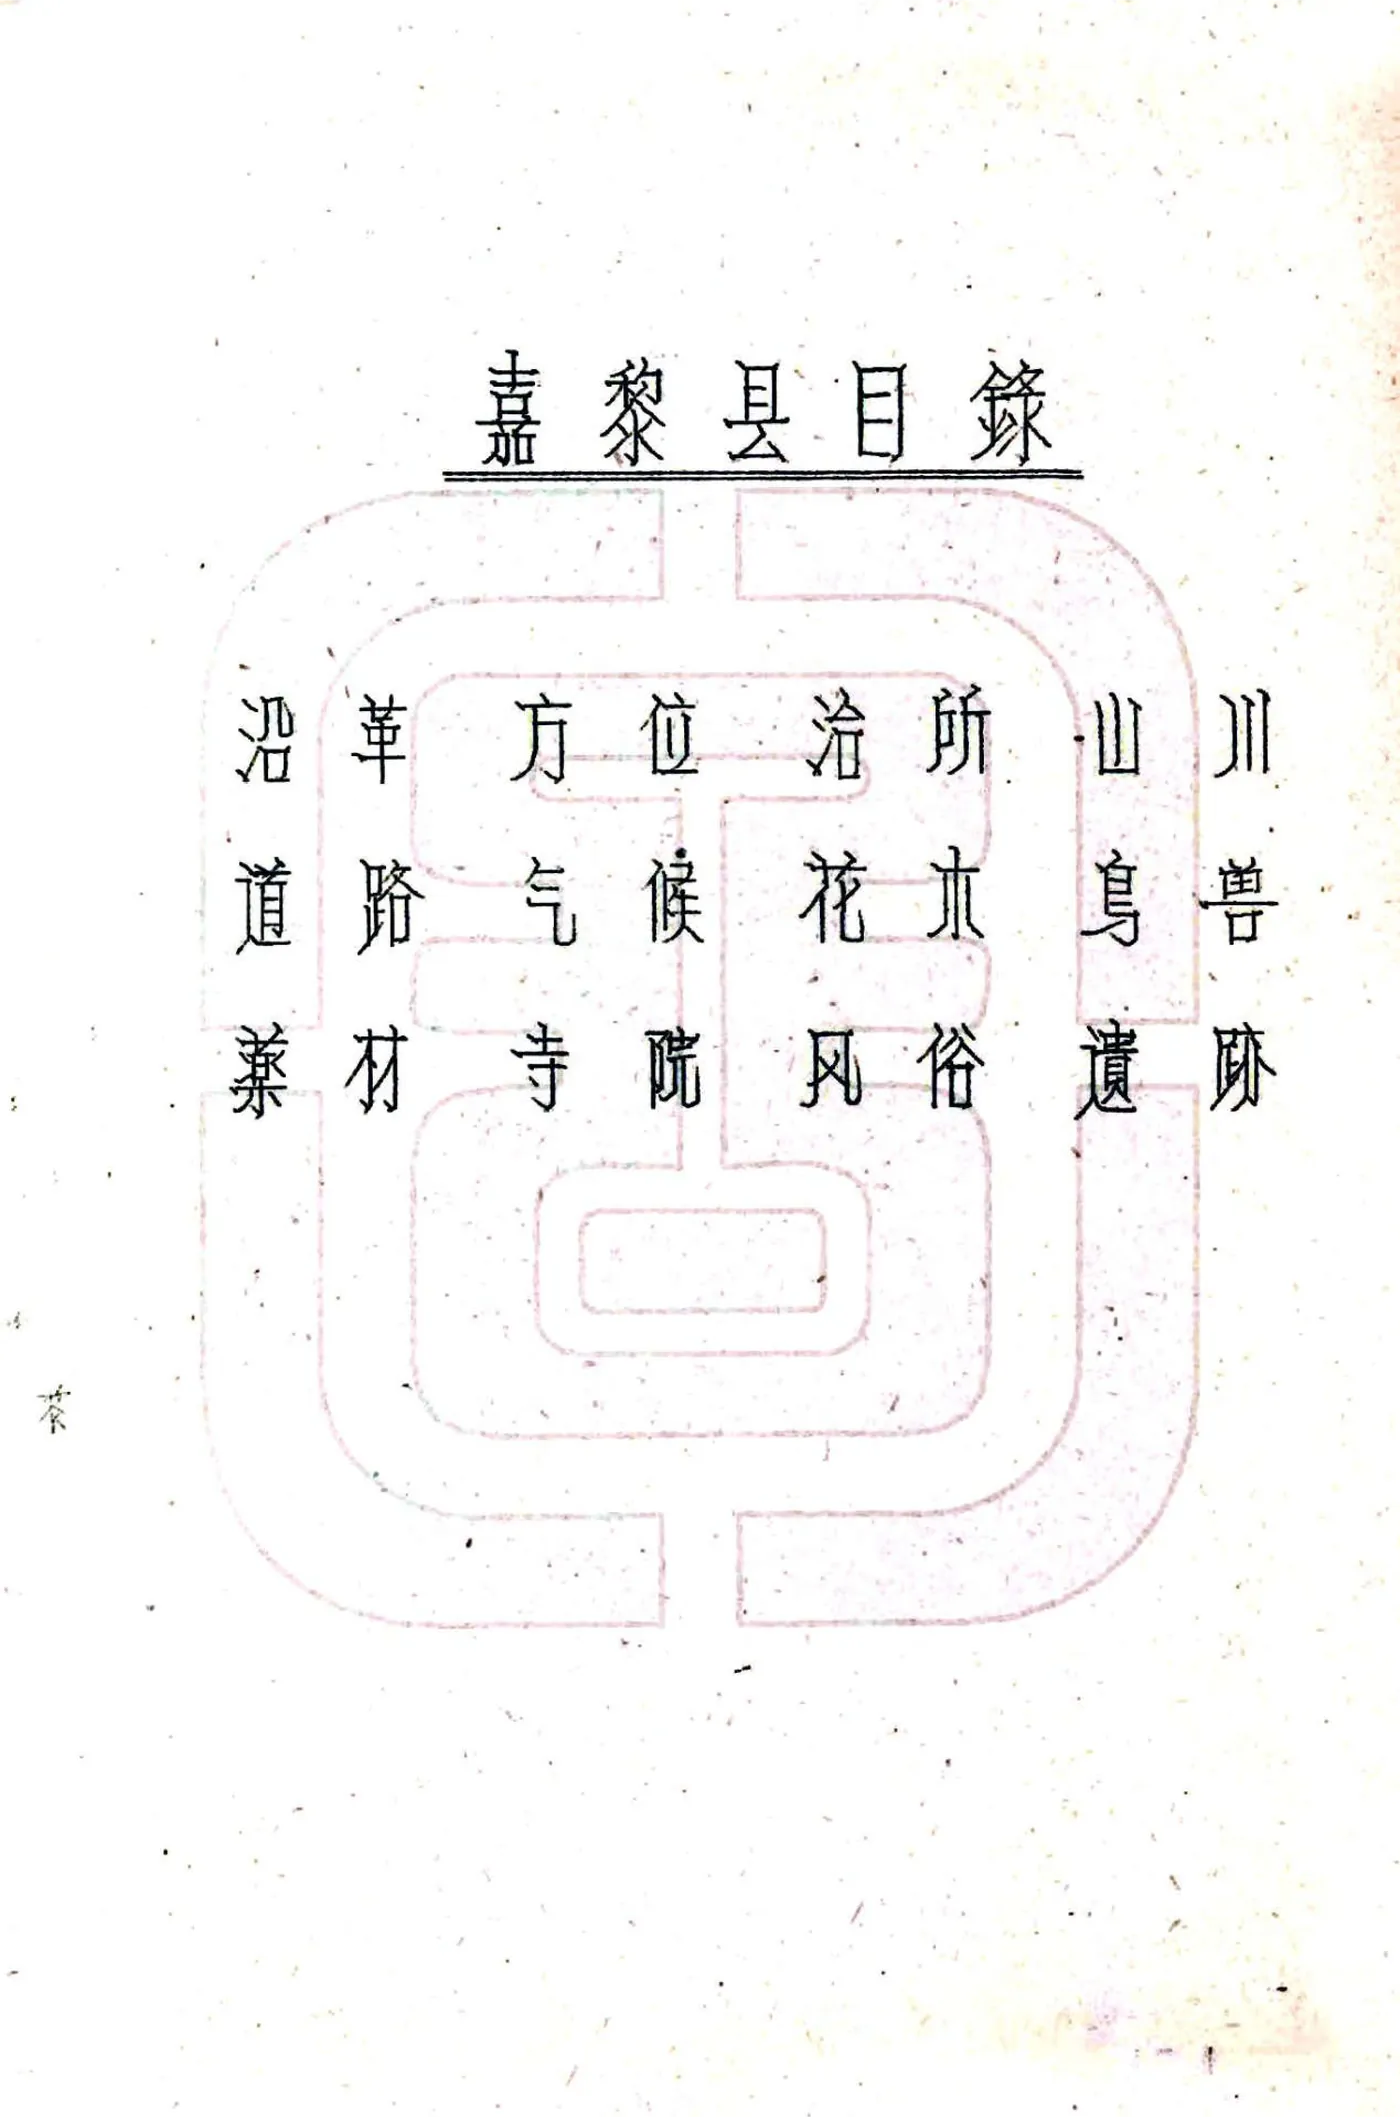 嘉黎县目錄
沿革 方位 治所 山川
道路 气候 花木 鸟兽
薬材 寺院 风俗 遺跡